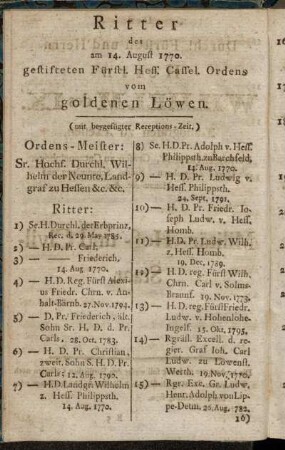 Ritter
des
am 14. August 1770.
gestifteten Fürstl. Hess. Cassel. Ordens
vom
goldenen Löwen.
(mit beygefügter Receptions-Zeit.)
Ordens-Meister:
Sr. Hochf. Durchl. Wil-
helm der Neunte, Land-
graf zu Hessen &c. &c.
Ritter:
1) Sr. H. Durchl. der Erbprinz,
Rec. d. 29 May 1785.
2) — H. D. Pr. Carl,
3) — — Friederich,
14. Aug. 1770.
4) — H. D. Reg. Fürst Alexi-
us Friedr. Chrn. v. An-
halt-Bärnb. 27. Nov. 1794.
5) — D. Pr. Friederich, ält.
Sohn Sr. H. D. d. Pr.
Carls, 28. Oct. 1783.
6) — H. D. Pr. Christian,
zweit. Sohn S. H. D. Pr.
Carls; 12. Aug. 1790.
7) — H. D. Landgr. Wilhelm
z. Hess. Philippsth.
14. Aug. 1770.
8) Se. H. D. Pr. Adolph v. Hess.
Philippsth. zu Barchfeld,
14. Aug. 1770.
9) — H. D. Pr. Ludewig v.
Hess. Philippsth.
24. Sept. 1791.
10) — H. D. Pr. Friedr. Jo-
seph Ludw. v. Hess.
Homb.
11) — H. D. Pr. Ludw. Wilh.
z. Hess. Homb.
19. Dec. 1789.
12) — H. D. reg. Fürst Wilh.
Chrn. Carl v. Solms-
Braunf. 19. Nov. 1773.
13) — H. D. reg. Fürst Friedr.
Ludw. v. Hohenlohe-
Ingelf. 15. Okt. 1795.
14) — Rgräfl. Excell. d. re-
gier. Graf Joh. Carl
Ludw. zu Löwenst.
Werth. 19. Nov. 1780.
15) — Rgr. Exc. Gr. Ludw.
Henr. Adolph von Lip-
pe-Detm. 28. Aug. 782.
16)